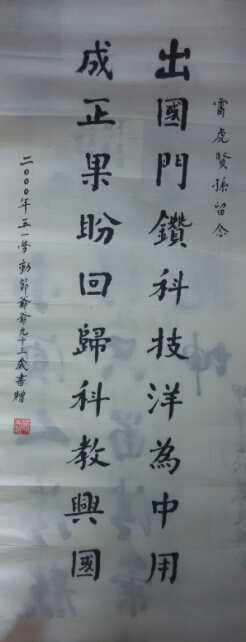 霄虎賢孫留念
出國門鑽科技洋為中用
成正果盼回歸科教興國
二〇〇〇年五一劳動節爺爺九十三歲書贈